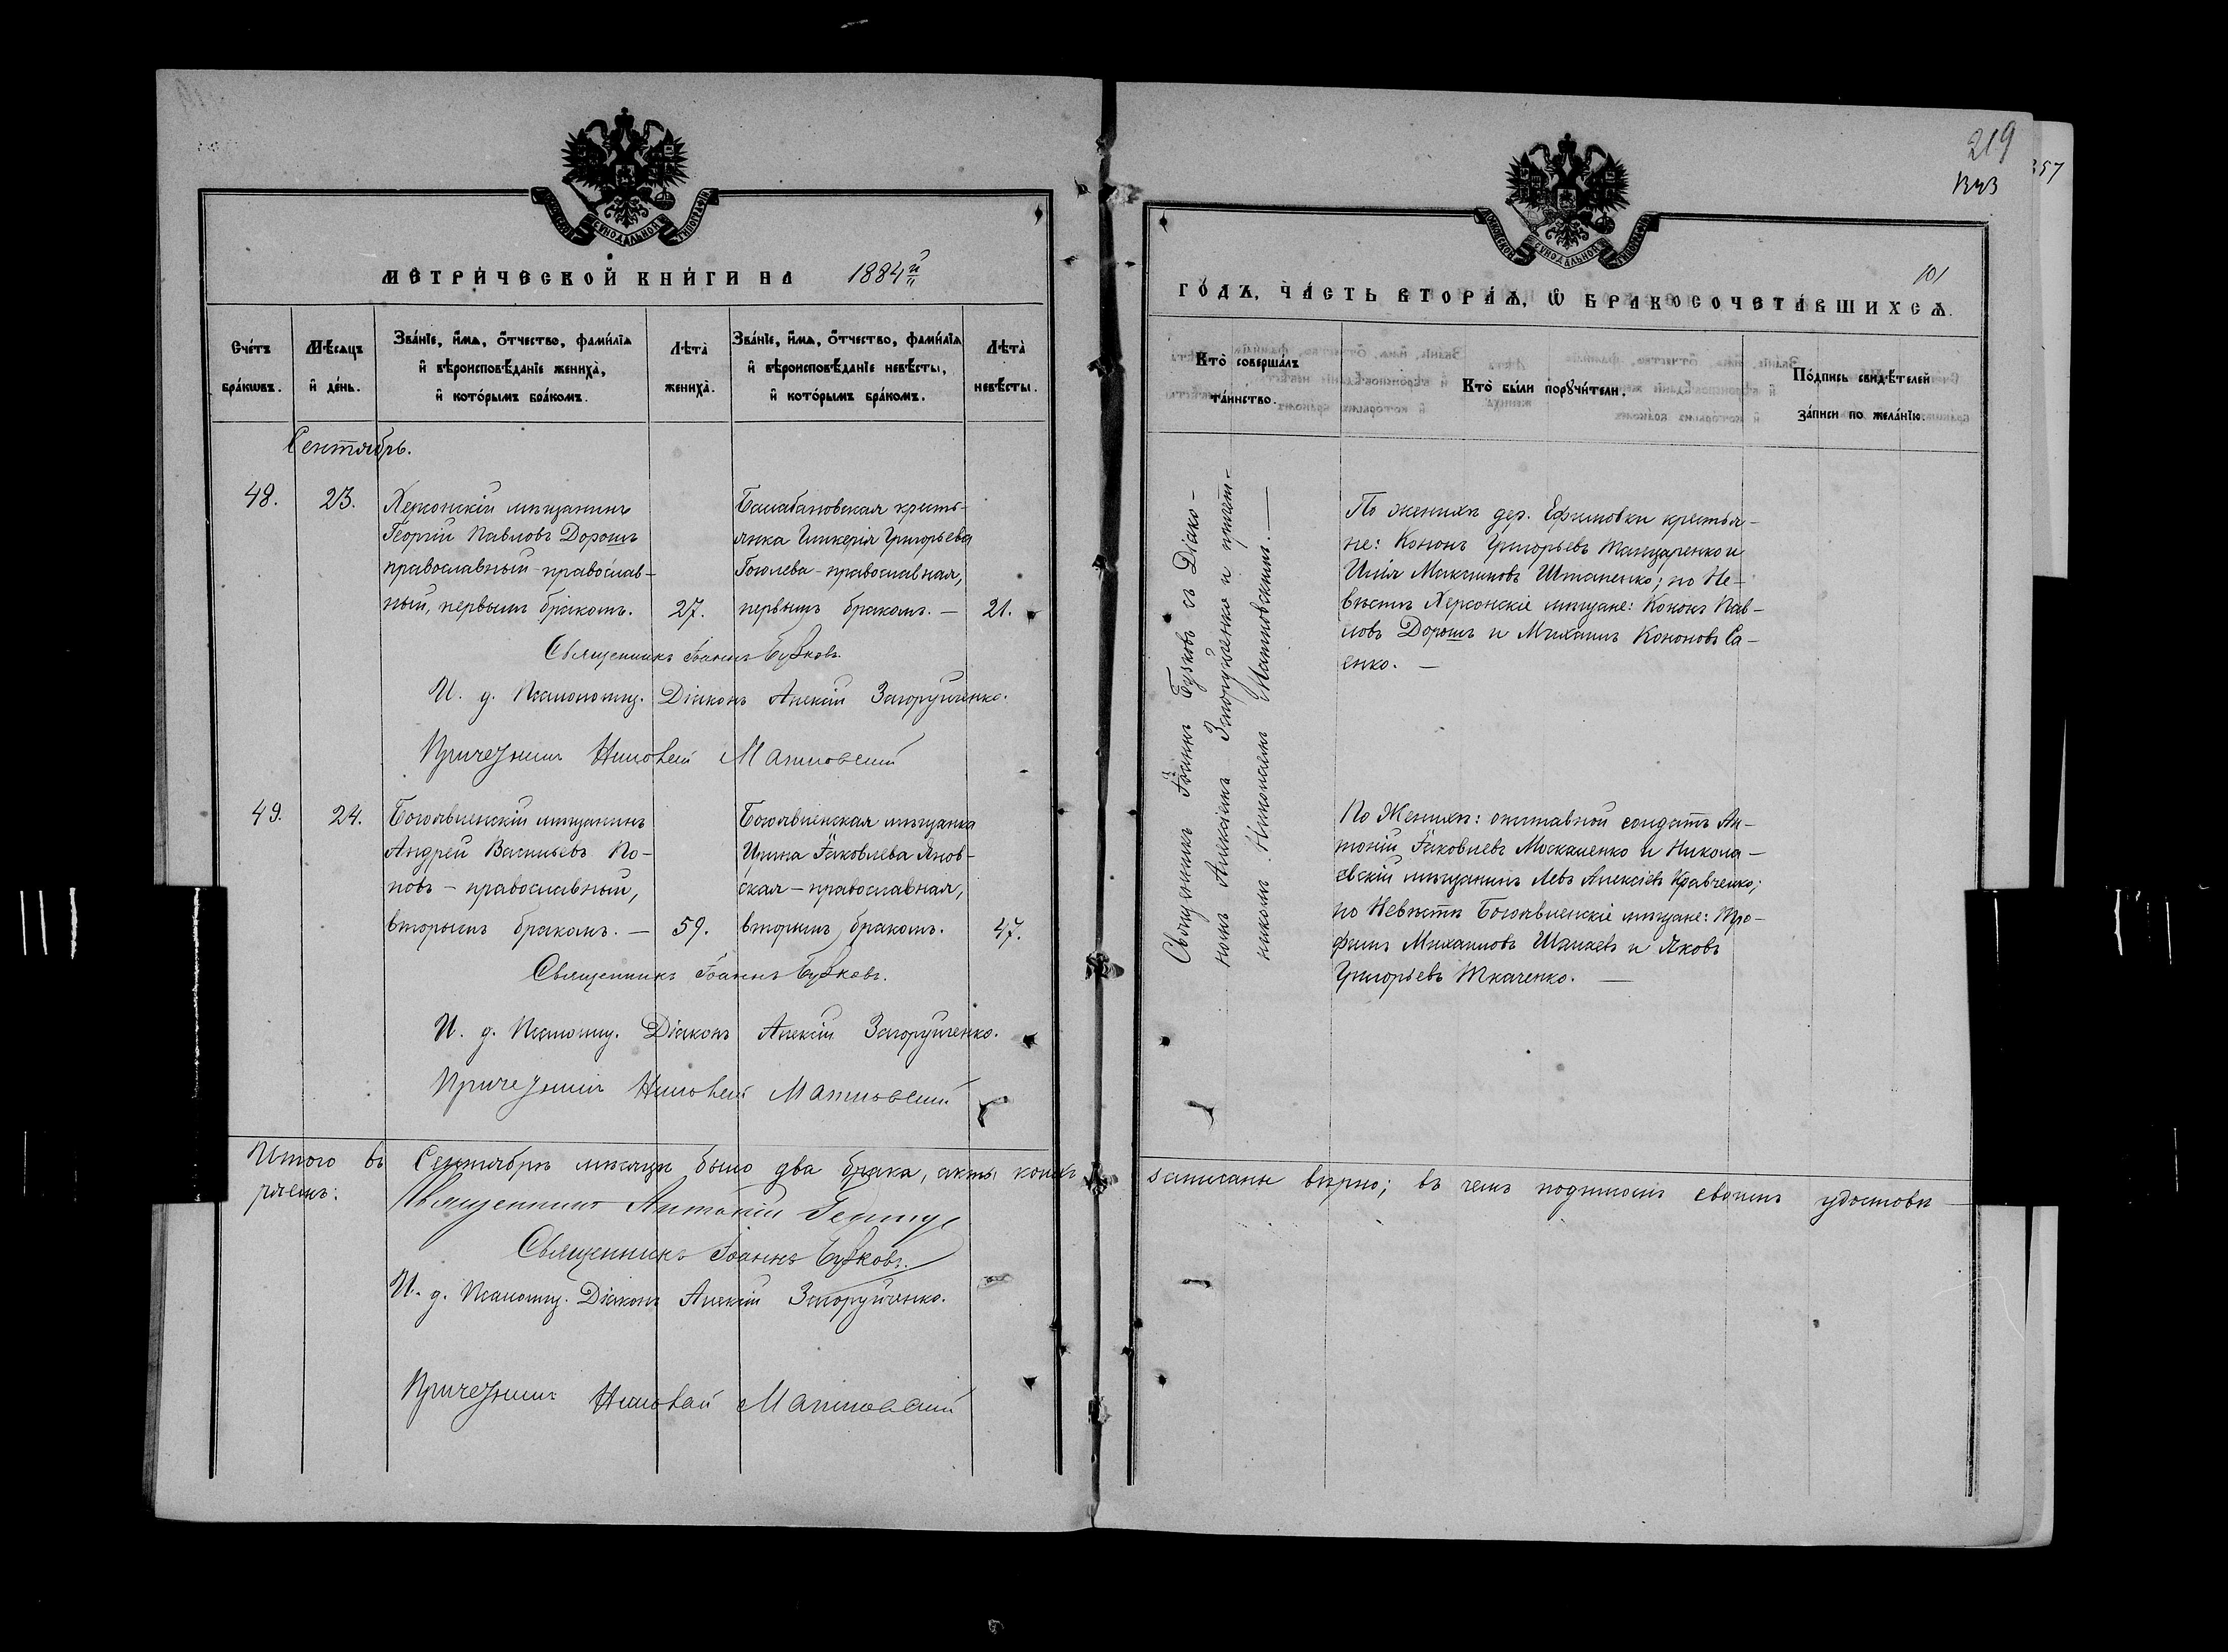 МЕТРИ́ЧЕСКОЙ КНИ́ГИ НА 1884й
Сче́тъ бра́кωвъ.
Мѣ́сяцъ и де́нь.
Зва́нїе, и́мя, о́тчество, фами́лїя и вѣроисповѣ́данїе жениха̀, и кото́рымъ бра́комъ.
Лѣта̀ жениха̀.
Зва́нїе, и́мя, о́тчество, фами́лїя и вѣроисповѣ́данїе невѣ́сты, и кото́рымъ бра́комъ.
Лѣта̀ невѣ́сты.
Сентябрь.
48. 23.
Херсонскій мѣщанинъ
Георгій Павловъ Дорошъ
православный православ-
ный, первымъ бракомъ. 27.
Балабановская кресть-
янка Гликерія Григорьева
Гоголева - православная,
первымъ бракомъ. — 21.
Священникъ Іоаннъ Бузковъ.
И. д. Псаломщ. Діаконъ Алексій Загоруйченко.
Причетникъ Николай Матковскій
49. 24.
Богоявленскій мѣщанинъ
Андрей Васильевъ По-
повъ - православный,
вторымъ бракомъ. — 59.
Богоявленская мѣщанка
Ирина Іаковлева Янов-
ская - православная,
вторымъ бракомъ. 47.
Священникъ Іоаннъ Бузковъ.
И. д. Псаломщ. Діаконъ Алексій Загоруйченко.
Причетникъ Николай Матковскій
Итого въ Сентябрѣ мѣсяцѣ было два брака, акты коихъ
ряемъ:
Священникъ Антоній
Священникъ Іоаннъ Бузковъ.
И. д. Псаломщ. Діаконъ Алексій Загоруйченко.
Причетникъ Николай Матковскій
219
357
101
ГО́ДЪ, ЧА́СТЬ ВТОРА́Я, Ѡ БРАКОСОЧЕТА́ВШИХСЯ.
Кто̀ соверша́лъ та́инство.
Кто̀ бы́ли поручи́тели.
По́дпись свидѣ́телей за́писи по жела́нїю.
Священникъ Іоаннъ Бузковъ съ Діако-
номъ Алексіемъ Загоруйченко и причет-
никомъ Николаемъ Матковскимъ. —
По женихѣ дер. Ефимовки крестья-
не: Кононъ Григорьевъ Танцаренко и
Илія Максимовъ Штапенко; по Не-
вѣстѣ Херсонскіе мѣщане: Кононъ Пав-
ловъ Дорошъ и Михаилъ Кононовъ Са-
енко. —
По Женихѣ: отставной солдатъ Ан-
тоній Іаковлевъ Москаленко и Никола-
евскій мѣщанинъ Левъ Алексіевъ Кравченко;
по Невѣстѣ Богоявленскіе мѣщане: Тро-
фимъ Михаиловъ Шамаевъ и Яковъ
Григорьевъ Ткаченко. —
записаны вѣрно; въ чемъ подписомъ своимъ удостовѣ-